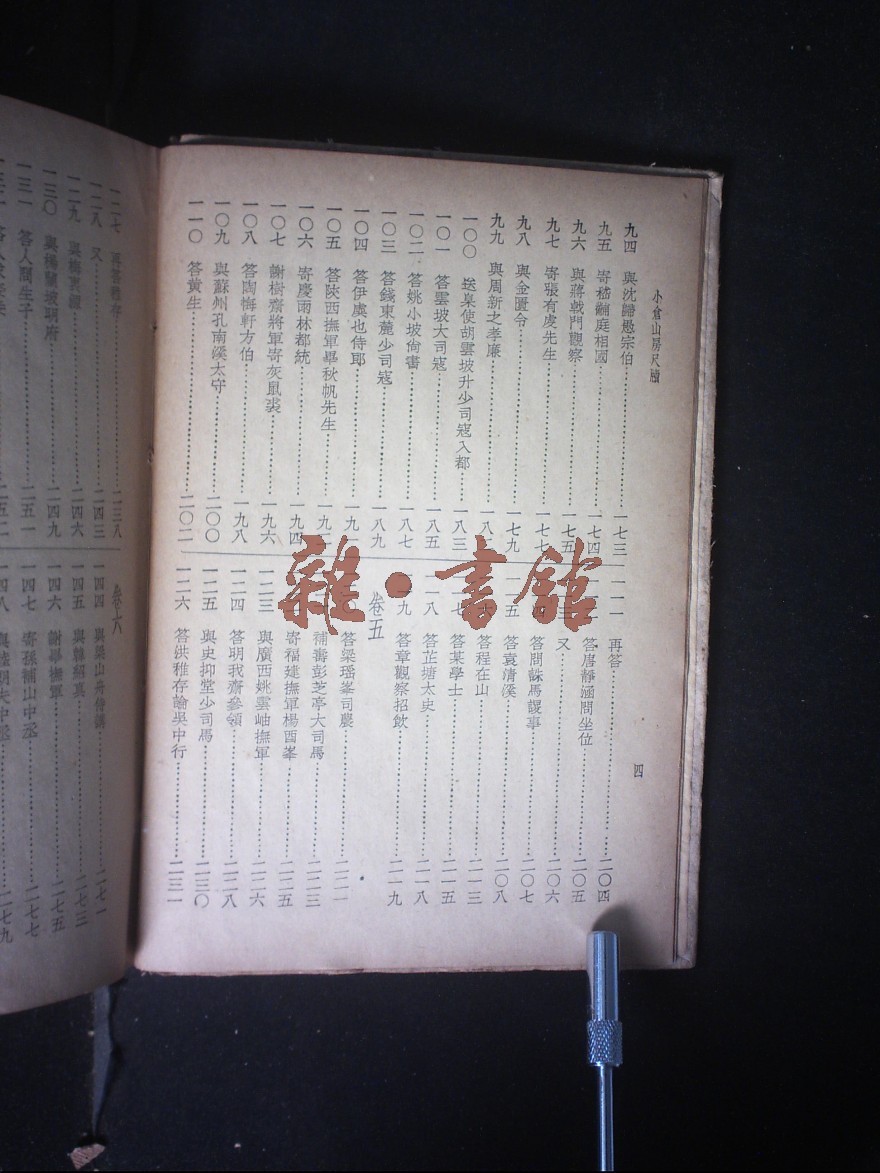 小倉山房尺牘
四
九四 與沈歸愚宗伯 一七三
九五 寄嵇黼庭相國 一七四
九六 與蔣戟門觀察 一七五
九七 寄張有虔先生 一七七
九八 與金匱令 一七九
九九 與周新之孝廉
一〇〇 送臬使胡雲坡升少司寇入都 一八三
一〇一 答雲坡大司寇 一八五
一〇二 答姚小坡尚書 一八七
一〇三 答錢東麓少司寇 一八九
一〇四 答伊虞也侍郎
一〇五 答陝西撫軍畢秋帆先生
一〇六 寄慶雨林都統 一九四
一〇七 謝樹齋將軍寄灰鼠裘 一九六
一〇八 答陶悔軒方伯 一九八
一〇九 與蘇州孔南溪太守 二〇〇
一一〇 答黃生 二〇二
一一一 再答 二〇四
答唐靜涵問坐位 二〇五
又 二〇六
答問誅馬謖事 二〇七
答袁清溪 二〇八
答程在山 二一三
答某學士 二一五
一一八 答芷塘太史 二一八
答章觀察招飲 二一九
卷五
答梁瑤峯司農 二二一
補壽彭芝亭大司馬 二二三
寄福建撫軍楊酉峯 二二五
一二三 與廣西姚雲岫撫軍 二二六
一二四 答明我齋參領 二二八
一二五 與史抑堂少司馬 二三〇
一二六 答洪稚存論吳中行 二三一
一二七 再答稚存 二三八
一二八 又 二四三
一二九 與梅衷源 二四六
一三〇 與楊蘭坡明府 二四九
一三一 答人問生子 二五一
卷六
一四四 與梁山舟侍講 二七一
一四五 與韓紹真 二七三
一四六 謝畢撫軍 二七五
一四七 寄孫補山中丞 二七七
一四八 與陸朗夫中丞 二七九
雜·書館